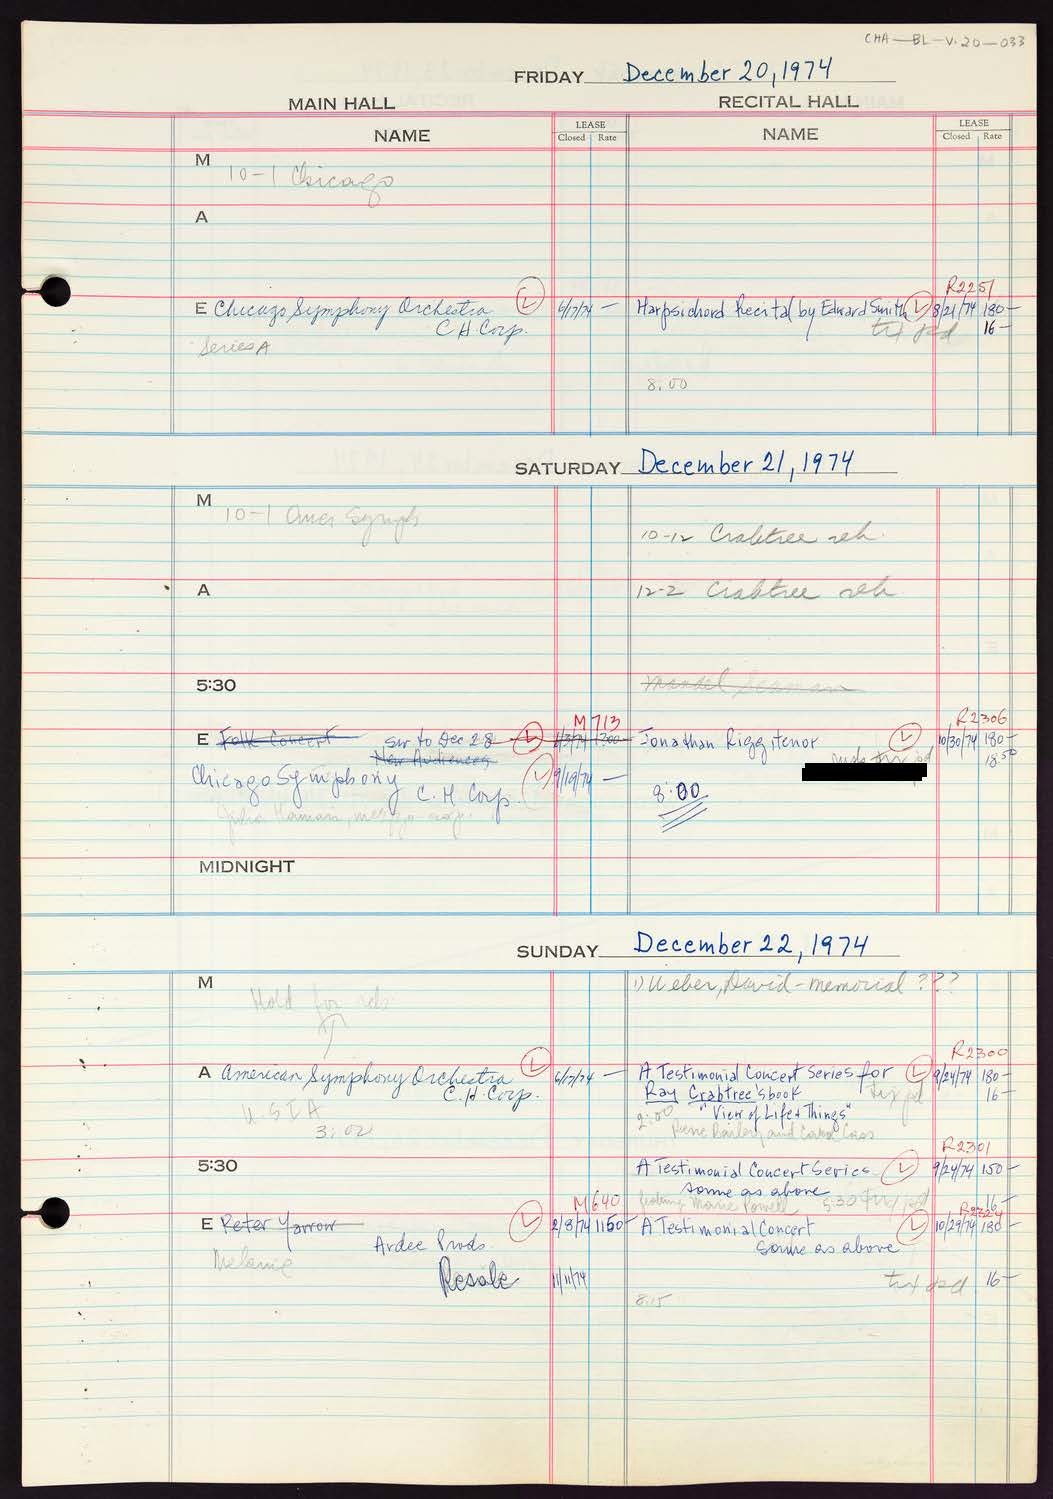 CHA-BL-V.20-033
FRIDAY December 20, 1974
MAIN HALL RECITAL HALL
NAME LEASE Closed Rate NAME LEASE Closed Rate
M
10-1 Chicago
A
R2251
E Chicago Symphony Orchestra L 6/17/74 — Harpsichord Recital by Edward Smith L 8/21/74 180—
C H Corp. txt pd 16—
Series A
8:00
SATURDAY December 21, 1974
M
10-1 Amer Symph
10-12 Crabtree reh.
A 12-2 Crabtree reh
5:30 Mandel Seaman
M713 R2306
E Folk Concert sw to Dec 28 L 1300— Jonathan Rigg, tenor L 10/30/74 180—
New Audiences pd 18 50
Chicago Symphony L 9/19/74 —
C. H. Corp. 8:00
MIDNIGHT
SUNDAY December 22, 1974
M 1) Weber, David - memorial ???
Hold for reh
R2300
A American Symphony Orchestra L 6/17/74 — A Testimonial Concert Series for L 9/24/74 180—
C.H. Corp. Ray Crabtree's book txt pd 16—
U.S.I.A 2:00 "View of Life & Things"
3:02
R2301
5:30 A Testimonial Concert Series L 9/24/74 150—
same as above
Marie Powell 5:30 pd 16—
M640 R2324
E Peter Yarrow L 2/8/74 1150— A Testimonial Concert L 10/29/74 180—
Ardee Prods. same as above
Melanie
Resale 11/11/74 txt pd 16—
8:15